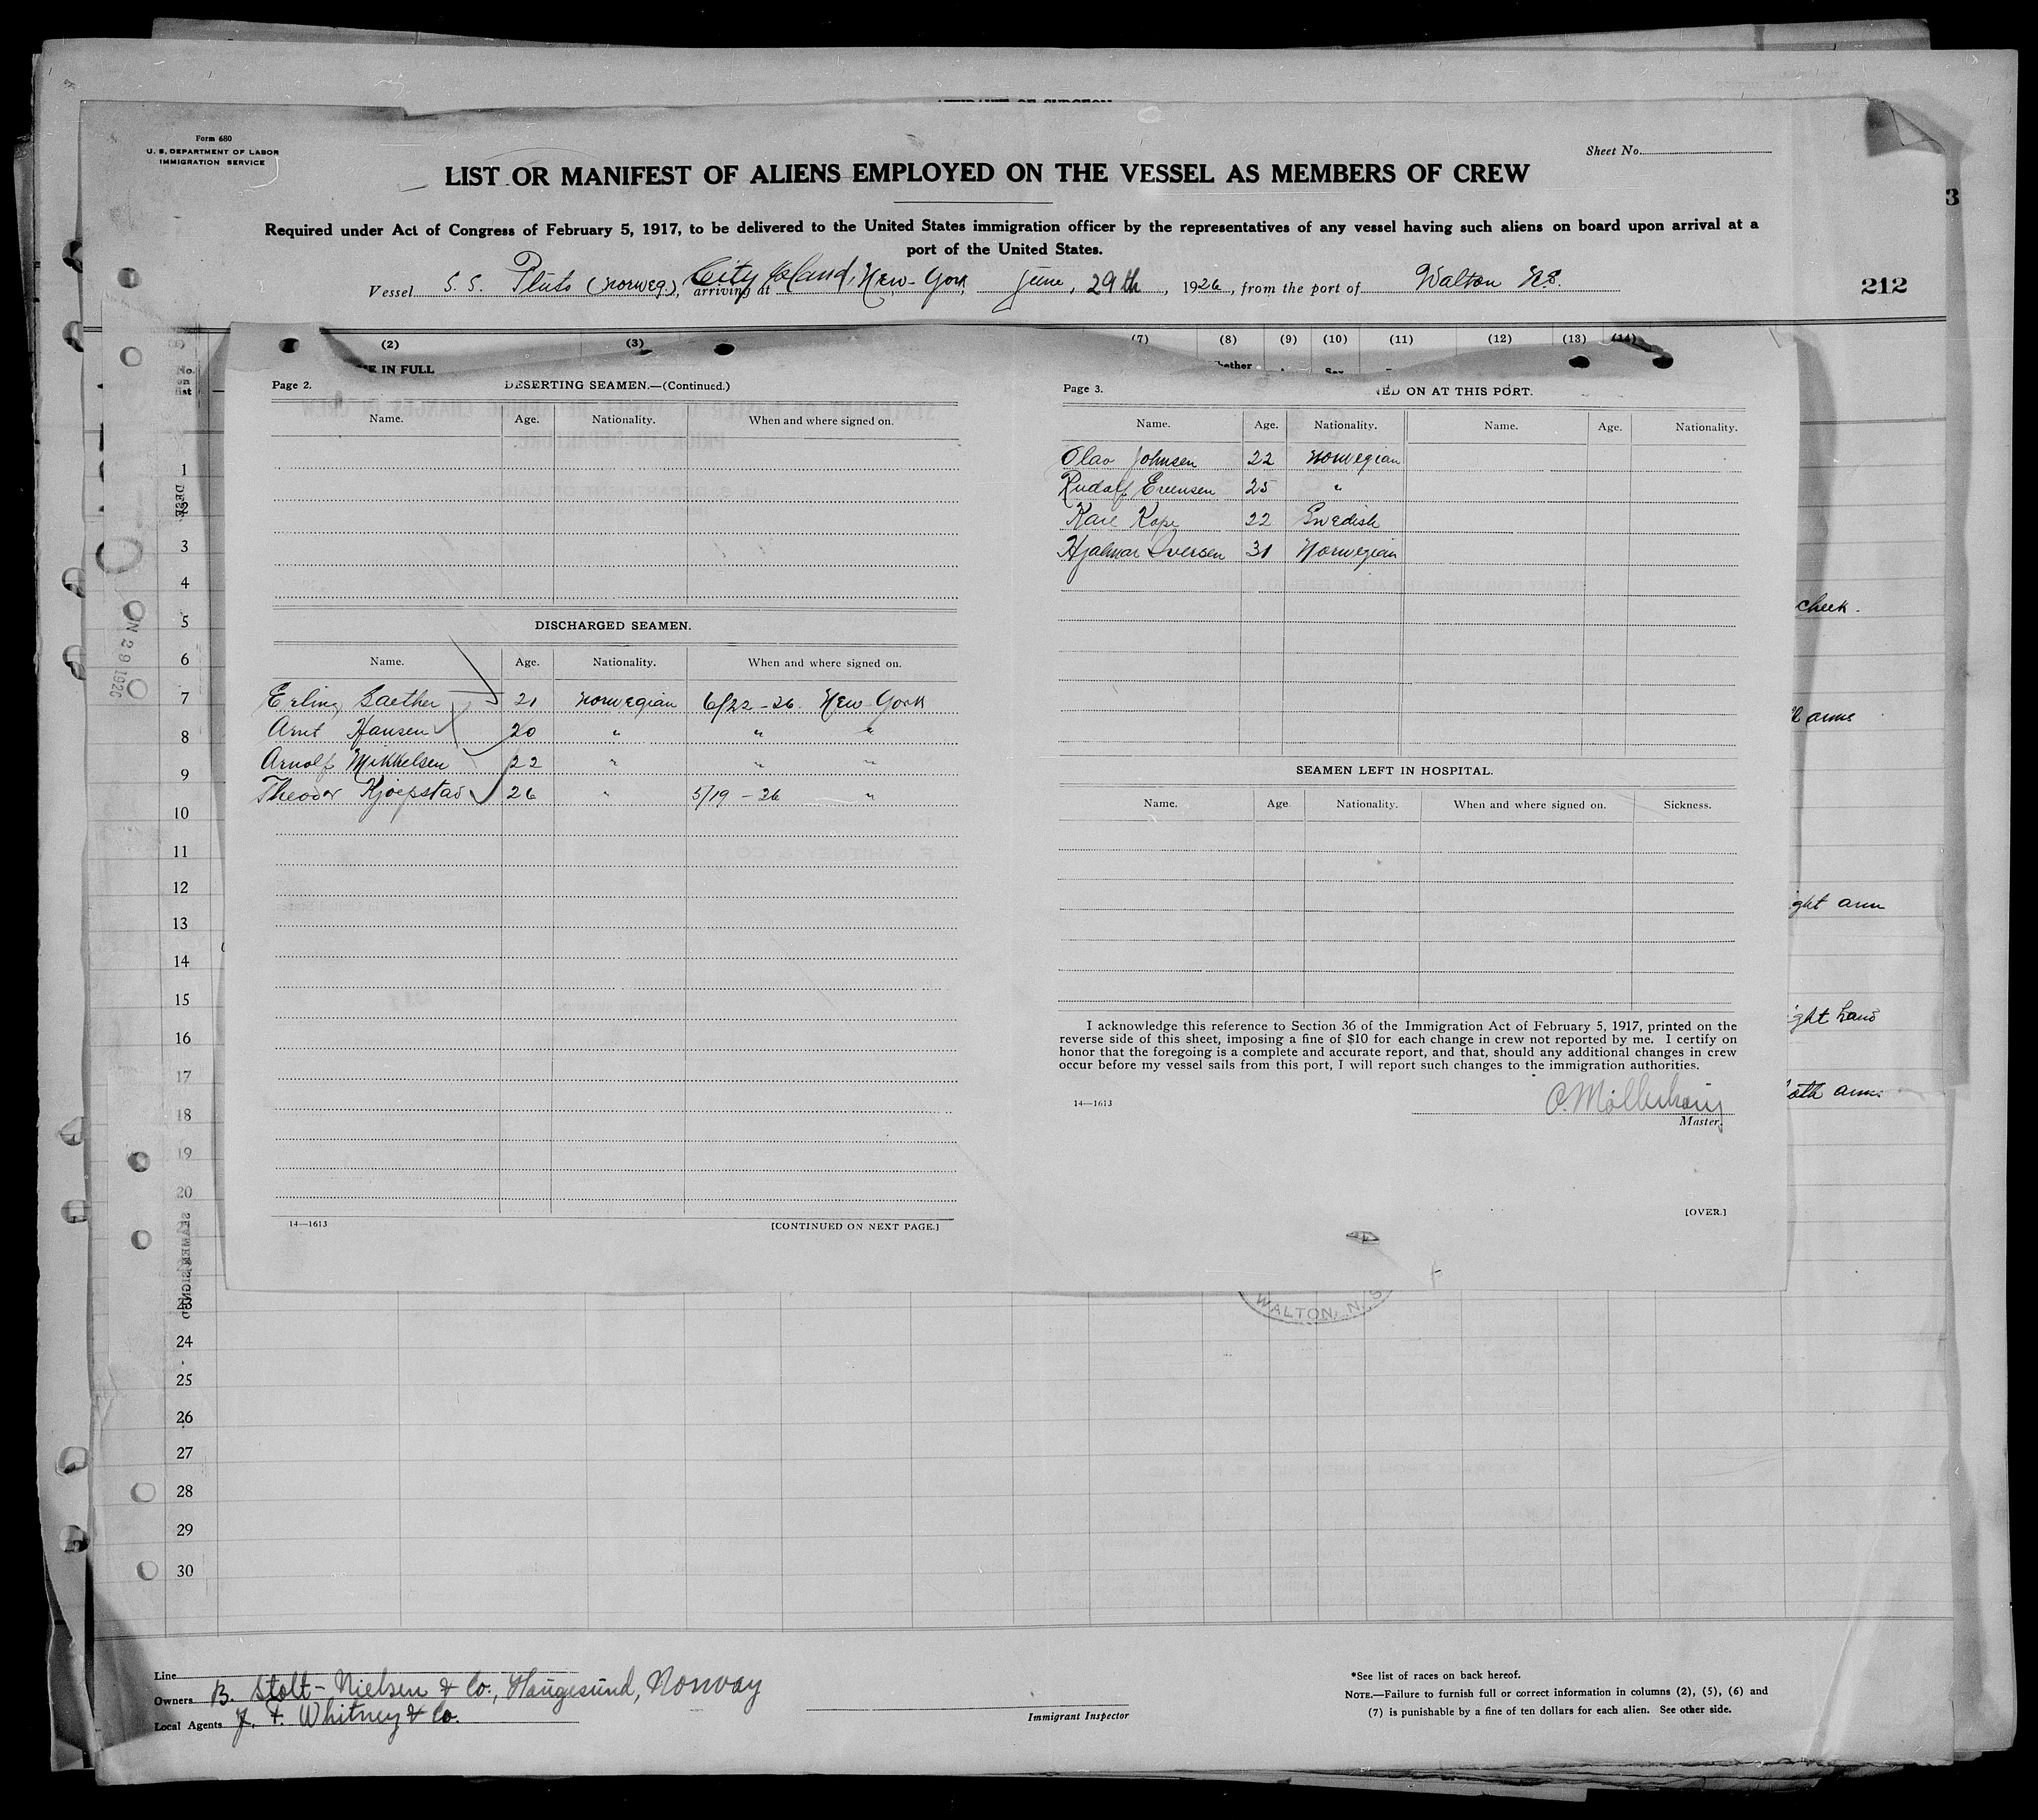 AFFIDAVIT OF SURGEON
Form 680
U. S. DEPARTMENT OF LABOR
IMMIGRATION SERVICE
Sheet No.
3
LIST OR MANIFEST OF ALIENS EMPLOYED ON THE VESSEL AS MEMBERS OF CREW
Required under Act of Congress of February 5, 1917, to be delivered to the United States immigration officer by the representatives of any vessel having such aliens on board upon arrival at a
port of the United States.
Vessel S.S. Pluto (Norweg), arriving at City Island, New-York, June, 29th, 1926, from the port of Walton N.S.
212
(2) (3) (7) (8) (9) (10) (11) (12) (13) (14)
E IN FULL
No. on list
Page 2. DESERTING SEAMEN.—(Continued.)
Name. Age. Nationality. When and where signed on.
DISCHARGED SEAMEN.
Name. Age. Nationality. When and where signed on.
Erling Saether 21 Norwegian 6/22-26 New York
Arnt Hansen 20 " " "
Arnolf Mikkelsen 22 " " "
Theodor 26 " 5/19-26 "
14—1613 [CONTINUED ON NEXT PAGE.]
Page 3. NED ON AT THIS PORT.
Name. Age. Nationality. Name. Age. Nationality.
Olav Johnsen 22 Norwegian
Rudolf 25 "
22 Swedish
Hjalmar Iversen 31 Norwegian
SEAMEN LEFT IN HOSPITAL.
Name. Age. Nationality. When and where signed on. Sickness.
I acknowledge this reference to Section 36 of the Immigration Act of February 5, 1917, printed on the
reverse side of this sheet, imposing a fine of $10 for each change in crew not reported by me. I certify on
honor that the foregoing is a complete and accurate report, and that, should any additional changes in crew
occur before my vessel sails from this port, I will report such changes to the immigration authorities.
14—1613
Master.
[OVER.]
1
2
3
4
5
6
7
8
9
10
11
12
13
14
15
16
17
18
19
20
23
24
25
26
27
28
29
30
cheek.
arms
ght arm
ght hand
oth arms
WALTON, N.S.
Line
Owners B. Stolt-Nielsen & Co., Haugesund, Norway
Local Agents J. F. Whitney & Co.
Immigrant Inspector
*See list of races on back hereof.
NOTE.—Failure to furnish full or correct information in columns (2), (5), (6) and
(7) is punishable by a fine of ten dollars for each alien. See other side.